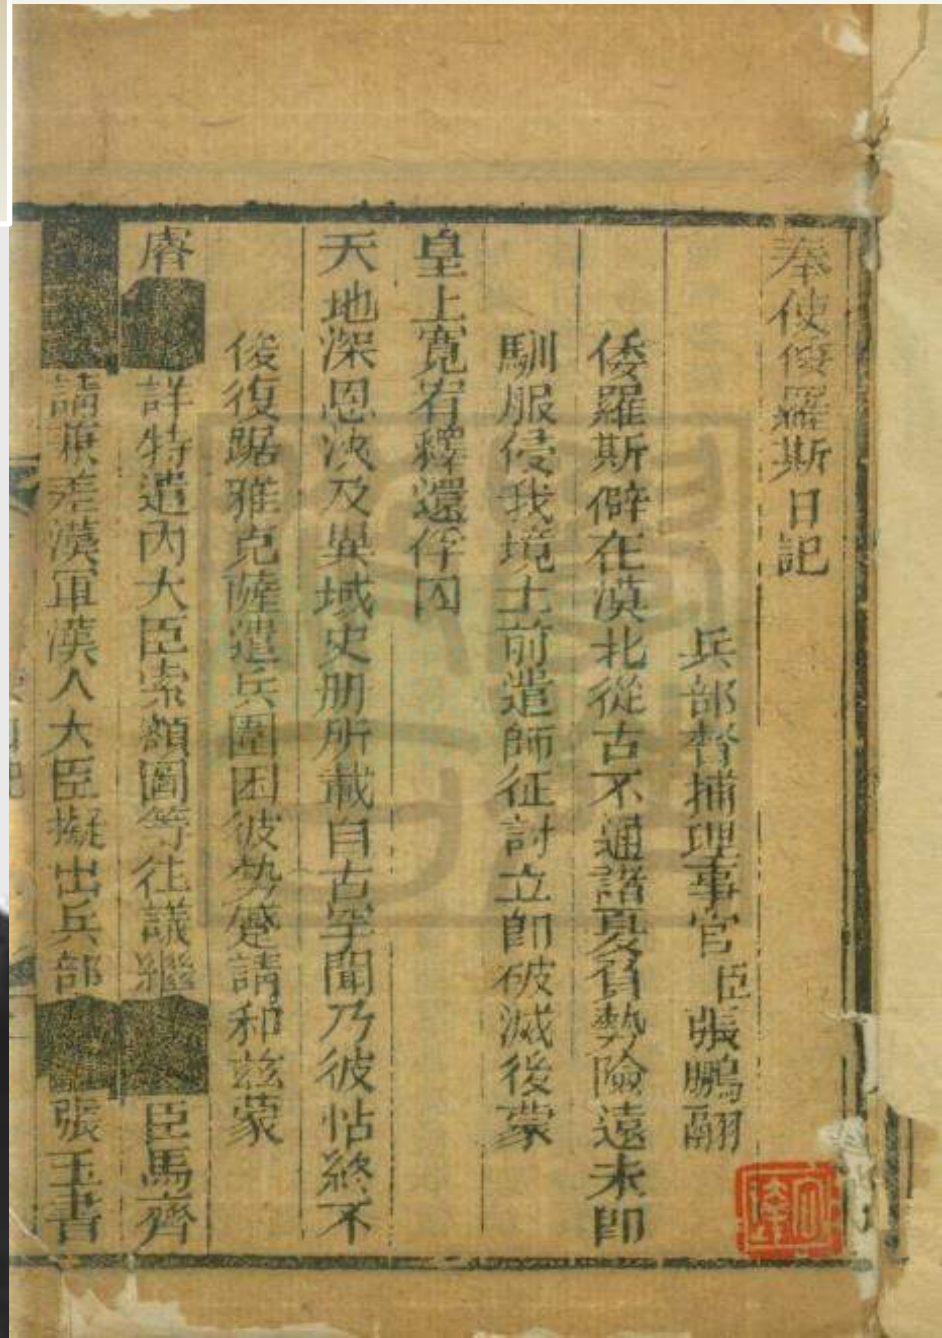 奉使倭羅斯日記
兵部督捕理事官臣張鵬翮
倭羅斯僻在漠北從古不通諸夏負勢險遠未即
馴服侵我境土前遣師征討立即破滅後蒙
皇上寬宥釋還俘囚
天地深恩決及異域史册所載自古罕聞乃彼怙終不
俊復踞雅克薩遣兵圍困彼勢蹙請和茲蒙
睿詳特遣內大臣索額圖等往議繼臣馬齊
請兼差漢軍漢人大臣擬出兵部張玉書